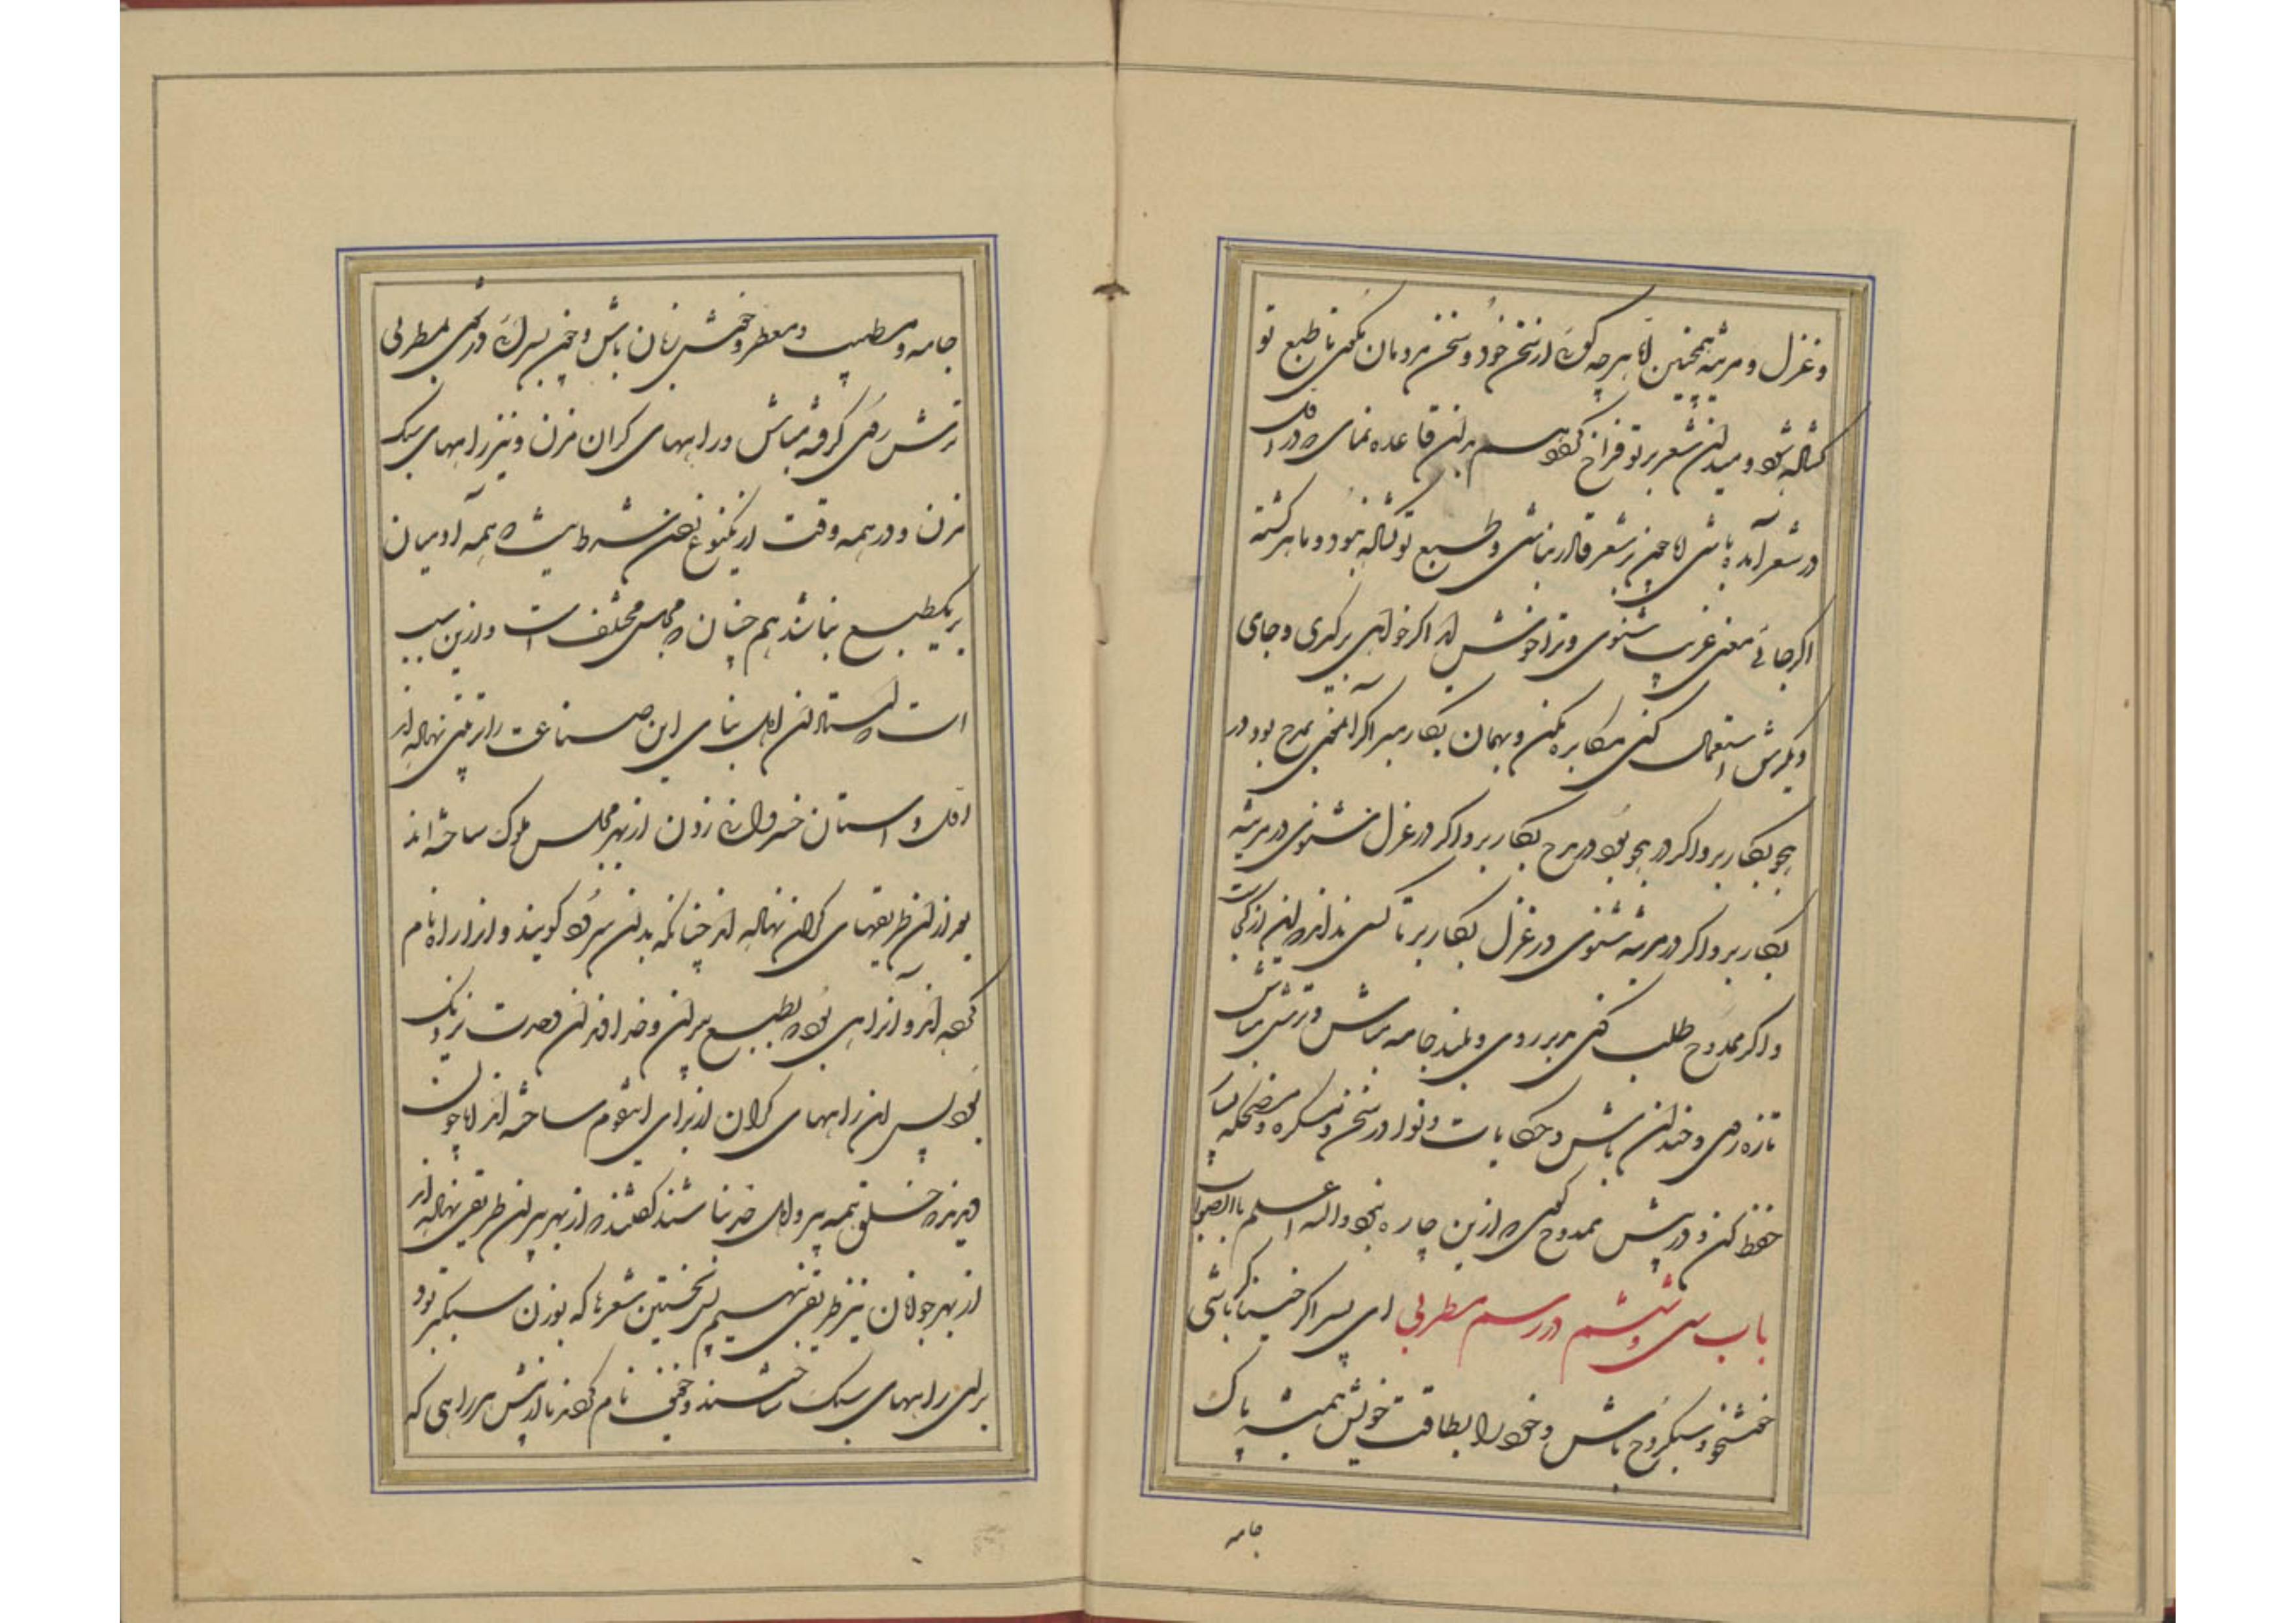 و غزل و مرثیه همچنین اما هرچه گوئی از سخن خود و سخن مردمان مگوی تا طبع تو
گشاده شود و میدان شعر بر تو فراخ گردد هم بران قاعده نمانی که در اول
در شعر آمده باشی اما چون بر شعر قادر باشی و طبع تو گشاده بود و ماهر گشته
اگر جائی معنی غریب بشنوی و ترا خوش آید اگر خواهی برگیری و جای
دیگرش استعمال کنی مکابره مکن و بهمان بکار مبر اگر آن معنی بمدح بود در
هجو بکار بر و اگر در هجو بود در مدح بکار بر و اگر در غزل شنوی در مرثیه
بکار بر و اگر در مرثیه شنوی در غزل بکار بر تا کسی نداند که این از کجاست
و اگر ممدوح طلب کنی مدبر روی و پلید جامه مباش و ترشروی مباش
تازه روی و خندان باش و حکایات و نوادر سخن و مسکره و مضحکه بسیار
حفظ کن و در پیش ممدوح گوی که ازین چاره نبود والله اعلم بالصواب
باب سی و ششم در رسم مطربی ای پسر اگر خنیاگر باشی
خوشخو و سبکروح باش و خود را بطاقت خویش همیشه پاک
جامه
جامه و مطیب و معطر و خوش زبان باش و چون بسرای در شوی بمطربی
ترش روی گرفته مباش و راههای گران مزن و نیز راههای سبک
مزن و در همه وقت از یکنوع زدن شرط نیست که همه آدمیان
بر یکطبع نباشند هم چنان که مجلس مختلف است و ازین سبب
است که استادان اهل بنای این صناعت را ترتیبی نهاده‌اند
اول دستان خسروانی زدن از بهر مجلس ملوک ساخته‌اند
بعد ازان طریقهای گران نهاده‌اند چنانکه بدان سرود گویند و انرا راه نام
کرده‌اند و آنراهی بود که بطبع پیران و خداوندان قدرت نزدیک
بود پس این راههای گران از برای این قوم ساخته‌اند اما چون
دیدند که خلق همه پیر و اهل خرد نباشند گفتند که از بهر پیران طریقی نهاده‌اند
از بهر جوانان نیز طریقی بنهیم پس بجستند شعرها که بوزن سبکتر بود
برای راههای سبک ساختند و خفیف نام کردند تا از پس هر راهی که